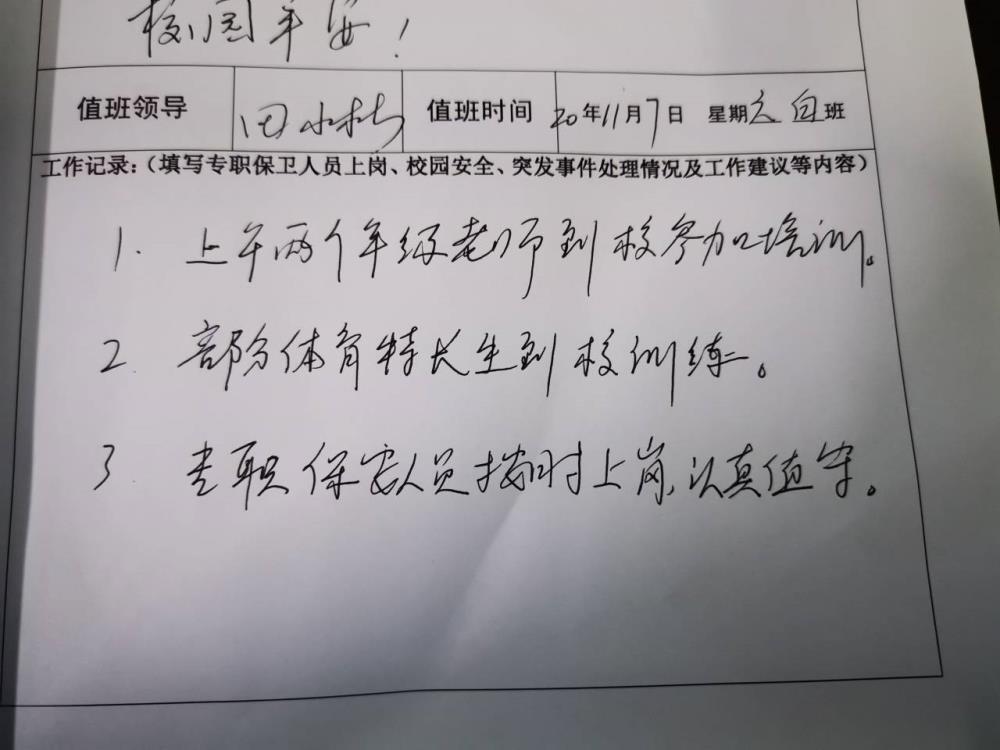 校园平安！
值班领导 田水村 值班时间 20年11月7日 星期六 白班
工作记录：（填写专职保卫人员上岗、校园安全、突发事件处理情况及工作建议等内容）
1. 上午两个年级老师到校参加培训。
2. 部分体育特长生到校训练。
3. 专职保安人员按时上岗，认真值守。